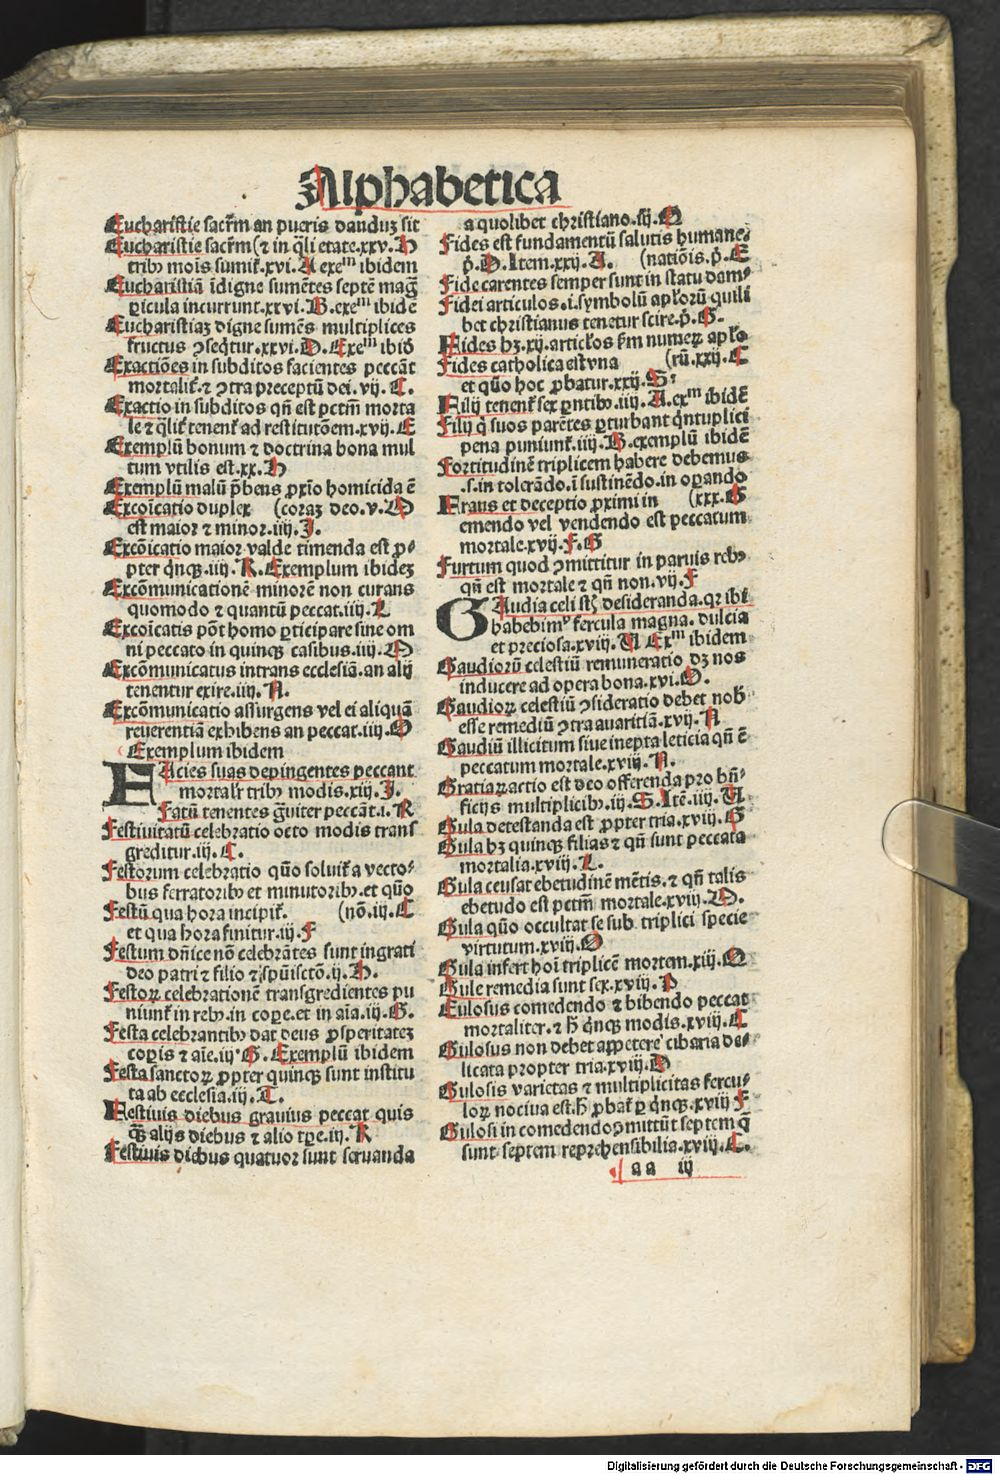 Alphabetica
Eucharistie sacr̄m an pueris danduꝫ sit
Eucharistie sacr̄m (⁊ in q̄li etate.xxv.H
tribꝰ mois sumit̄.xvi.A exeᵐ ibidem
Eucharistiā īdigne sumētes septē maḡ
ꝑicula incurrunt.xxvi.B.exeᵐ ibidē
Eucharistiaꝫ digne sumēs multiplices
fructus ꝯseq̄tur.xxvi.D.Exeᵐ ibid̄
Exactiōes in subditos facientes peccāt
mortalit̄.⁊ ꝯtra preceptū dei.vij.C.
Exactio in subditos qn̄ est pctm̄ morta
le ⁊ q̄lit̄ tenent̄ ad restitutōem.xvij.E
Exemplū bonum ⁊ doctrina bona mul
tum vtilis est.xx.H
Exemplū malū p̄bens ꝓxīo homicida ē
Excoīcatio duplex (coraꝫ deo.v.M
est maior ⁊ minor.iiij.I.
Excōicatio maior valde timenda est ꝓ⸗
pter q̄nqꝫ.iiij.K.Exemplum ibideꝫ
Excōmunicationē minorē non curans
quomodo ⁊ quantū peccat.iiij.L
Excoīcatis pōt homo ꝑticipare sine om
ni peccato in quinqꝫ casibus.iiij.M
Excōmunicatus intrans ecclesiā.an alij
tenentur exire.iiij.N.
Excōmunicatio assurgens vel ei aliquā
reuerentiā exhibens an peccat.iiij.O
Exemplum ibidem
FAcies suas depingentes peccant
mortalr̄ tribꝰ modis.xiij.I.
Fatū tenentes ḡuiter peccāt.i.K
Festiuitatū celebratio octo modis trans
greditur.iij.C.
Festorum celebratio quō soluit̄ a vecto⸗
bus ferratoribꝰ et minutoribꝰ.et quō
Festū qua hora incipit̄. (nō.iij.E
et qua hora finitur.iij.F
Festum dn̄ice nō celebrātes sunt ingrati
deo patri ⁊ filio ⁊ sp̄uisctō.ij.H.
Festoꝝ celebrationē transgredientes pu
niunt̄ in rebꝰ.in corꝑe.et in aīa.iij.G.
Festa celebrantibꝰ dat deus ꝓsperitateꝫ
corꝑis ⁊ aīe.iij G.Exemplū ibidem
Festa sanctoꝝ ꝓpter quinqꝫ sunt institu
ta ab ecclesia.iij.T.
Festiuis diebus grauius peccat quis
q̄ꝫ alijs diebus ⁊ alio tꝑe.iij.K
Festiuis diebus quatuor sunt seruanda
a quolibet christiano.iij.Q
Fides est fundamentū salutis humane⸗
p̄.D.Item.xxij.A. (natiōis.p̄.E
Fide carentes semper sunt in statu dam⸗
Fidei articulos.i.symbolū apl̄orū quili
bet christianus tenetur scire.p̄.G.
Fides hꝫ.xij.articl̄os s̄m numeꝝ apl̄o
Fides catholica est vna (rū.xxij.C
et quō hoc ꝓbatur.xxij.S⸗
Filij tenent̄ sex ꝑentibꝰ.iiij.A.exᵐ ibidē
Filij q̄ suos parētes ꝑturbant q̄ntuplici
pena puniunt̄.iiij.B.exemplū ibidē
Fortitudinē triplicem habere debemus
.s.in tolerādo.ī sustinēdo.in oꝑando
Fraus et deceptio ꝓximi in (xxx.G
emendo vel vendendo est peccatum
mortale.xvij.F.G
Furtum quod ꝯmittitur in paruis rebꝰ
qn̄ est mortale ⁊ qn̄ non.vij.F
GAudia celi sūt desideranda.qꝛ ibī
habebimꝰ fercula magna.dulcia
et preciosa.xviij.U Exᵐ ibidem
Gaudiorū celestiū remuneratio dꝫ nos
inducere ad opera bona.xvi.O.
Gaudioꝝ celestiū ꝯsideratio debet nob̄
esse remediū ꝯtra auaritiā.xvij.N
Gaudiū illicitum siue inepta leticia qn̄ ē
peccatum mortale.xviij.N.
Gratiaꝝ actio est deo offerenda pro bn̄⸗
ficijs multiplicibꝰ.iij.S.Itē.iiij.U
Gula detestanda est ꝓpter tria.xviij.G
Gula hꝫ quinqꝫ filias ⁊ qn̄ sunt peccata
mortalia.xviij.L.
Gula causat ebetudinē mētis.⁊ qn̄ talis
ebetudo est pctm̄ mortale.xviij.M.
Gula quō occultat se sub triplici specie
virtutum.xviij.O
Gula infert hoī triplicē mortem.xiij.Q
Gule remedia sunt sex.xviij.P
Gulosus comedendo ⁊ bibendo peccat
mortaliter.⁊ h̄ q̄nqꝫ modis.xviij.C
Gulosus non debet appetere cibaria de⸗
licata propter tria.xviij.D
Gulosis varietas ⁊ multiplicitas fercu⸗
loꝝ nociua est.h̄ ꝓbat̄ ꝑ q̄nqꝫ.xviij F
Gulosi in comedendo ꝯmittūt septem q̄
sunt septem reprehensibilia.xviij.C.
aa iij
Digitalisierung gefördert durch die Deutsche Forschungsgemeinschaft - DFG